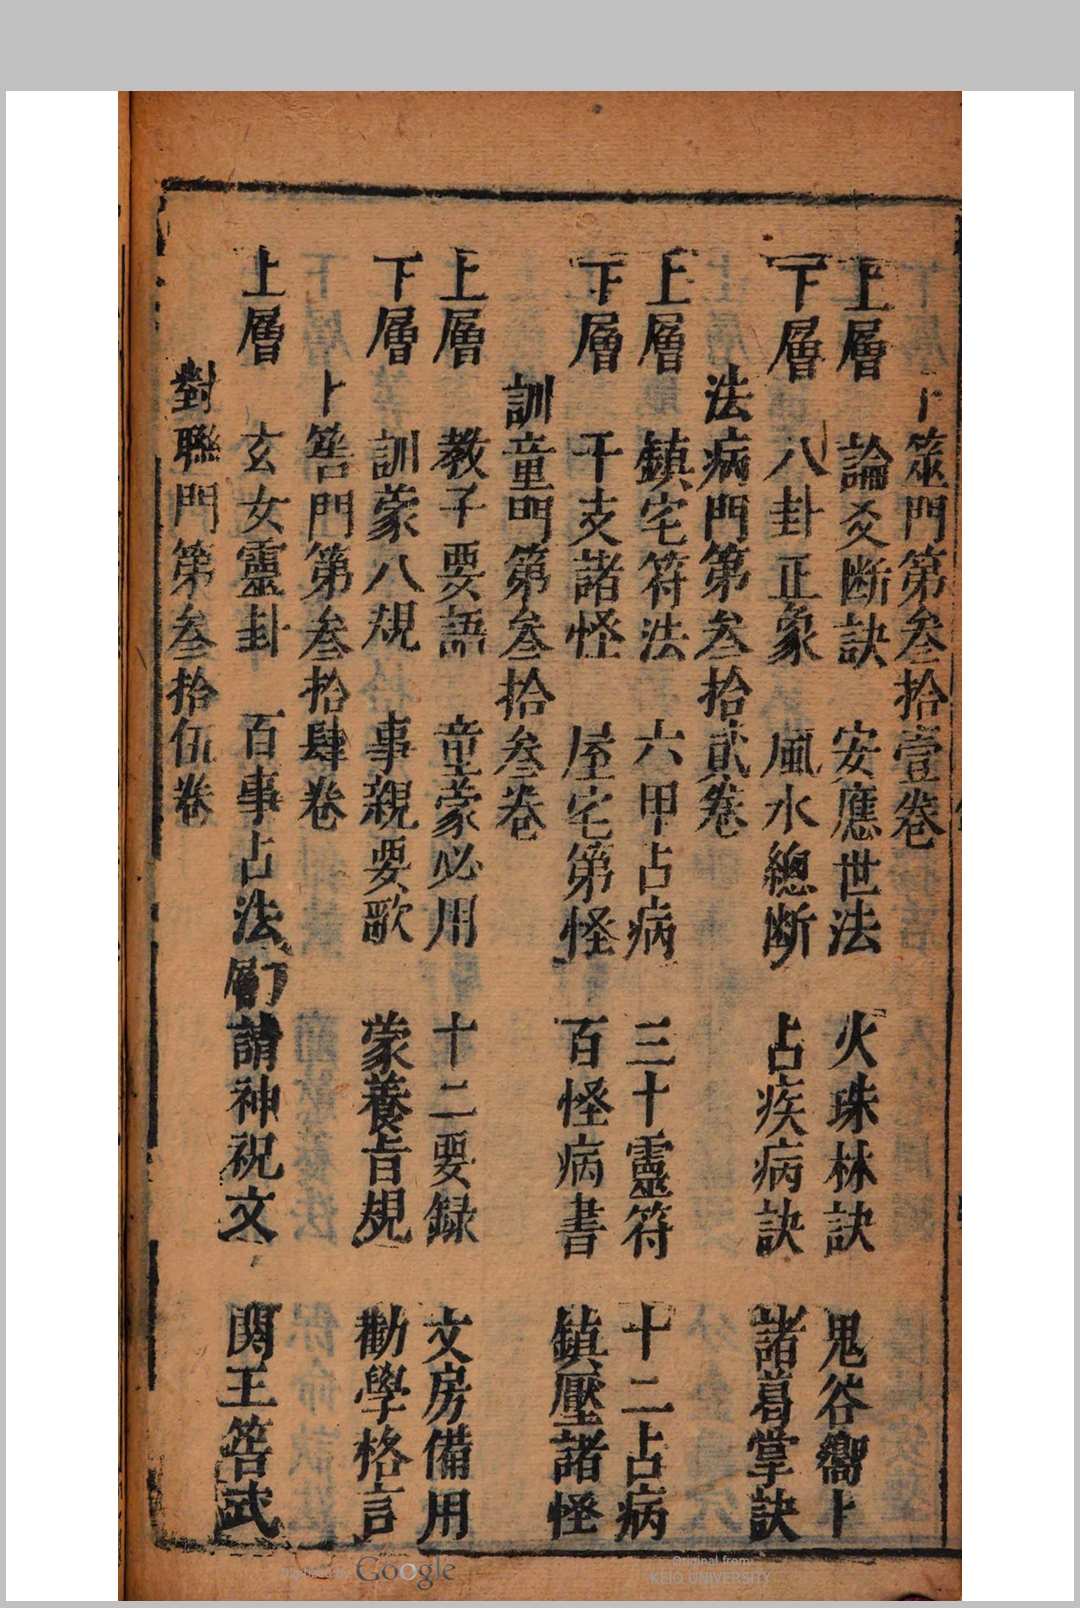 卜筮門第叁拾壹卷
上層 論爻断訣 安應世法 火珠林訣 鬼谷嚮卜
下層 八卦正象 風水總断 占疾病訣 諸葛掌訣
法病門第叁拾貳卷
上層 鎮宅符法 六甲占病 三十靈符 十二占病
下層 干支諸怪 屋宅第怪 百怪病書 鎮壓諸怪
訓童門第叁拾叁卷
上層 教子要語 童蒙必用 十二要録 文房備用
下層 訓蒙八規 事親要歌 蒙養旨規 勸學格言
卜筶門第叁拾肆卷
上層 玄女靈卦 百事占法 下層 請神祝文 関王筶武
對聯門第叁拾伍卷
Digitized by Google
Original from
KEIO UNIVERSITY